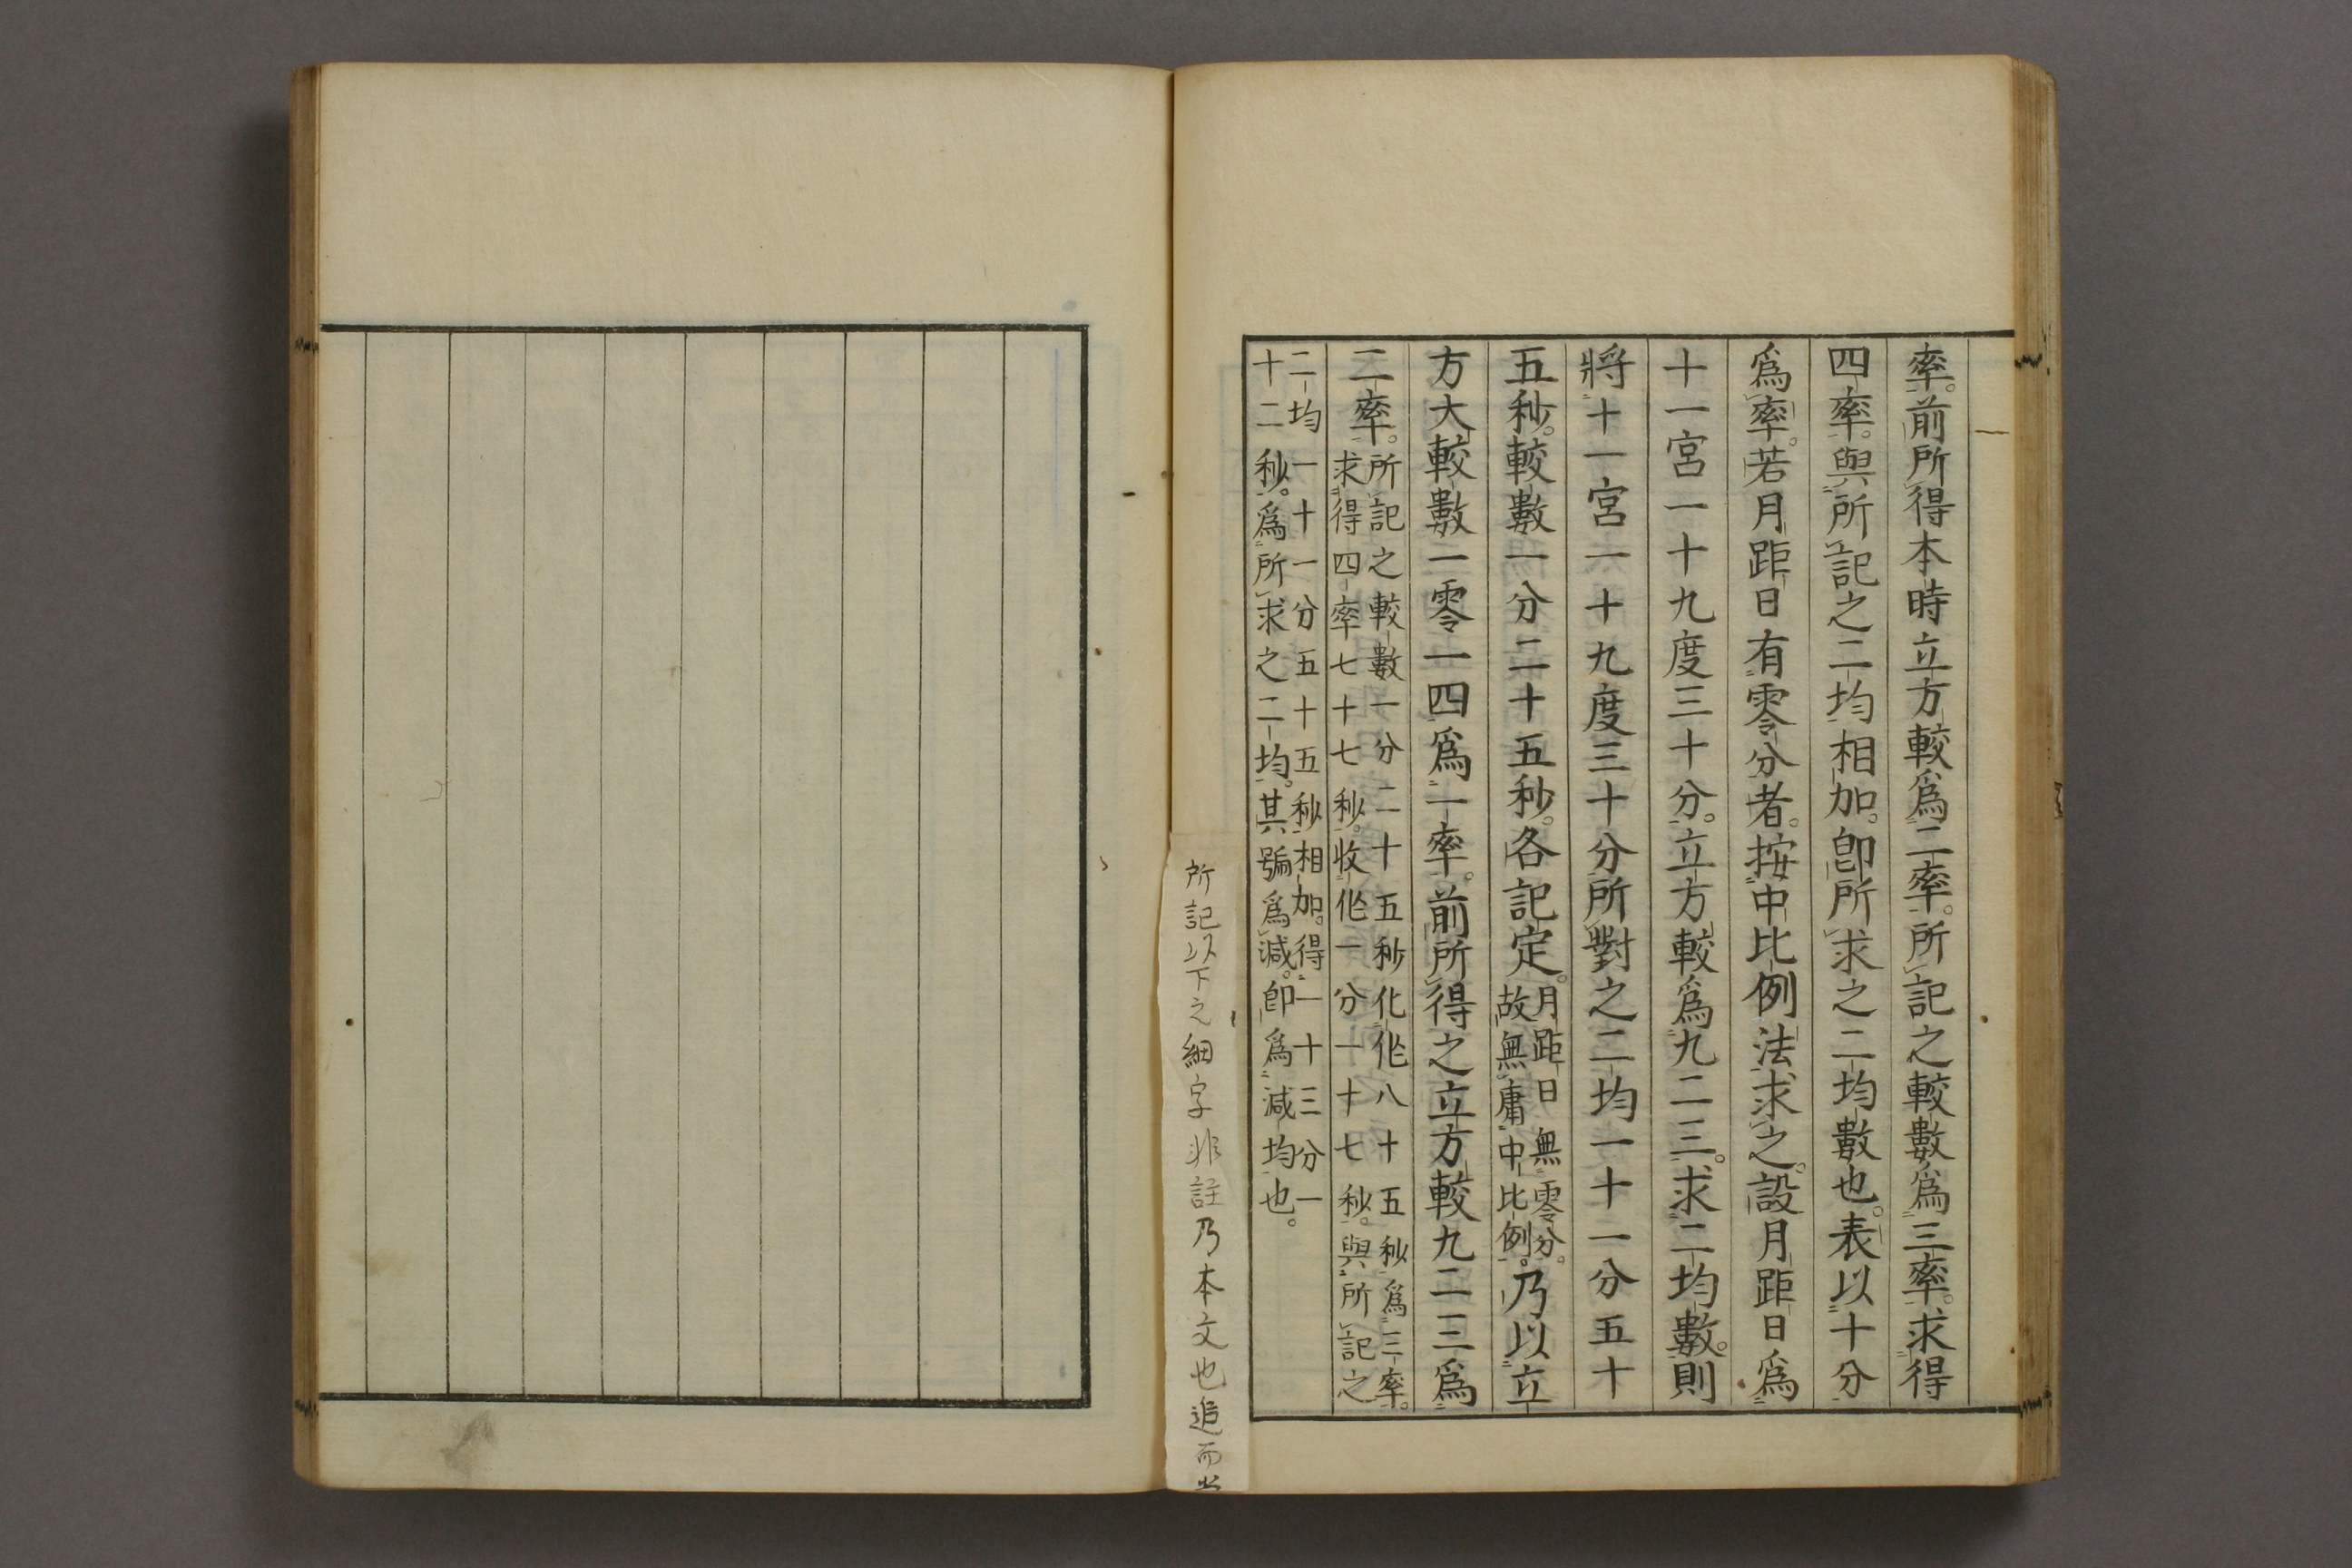 率。前所得本時立方較爲二率。所記之較數爲三率。求得
四率。與所記之二均相加。卽所求之二均數也。表以十分
爲率。若月距日有零分者。按中比例法求之。設月距日爲
十一宮一十九度三十分。立方較爲九二三。求二均數。則
將十一宮一十九度三十分所對之二均一十一分五十
五秒。較數一分二十五秒。各記定。
月距日無零分。
故無庸中比例。
乃以立
方大較數一零一四爲一率。前所得之立方較九二三爲
二率。
所記之較數一分二十五秒化作八十五秒爲三率。
求得四率七十七秒。收作一分一十七秒。與所記之
二均一十一分五十五秒相加。得一十三分一
十二秒。爲所求之二均。其號爲減。卽爲減均也。
所記以下之細字非註乃本文也追而